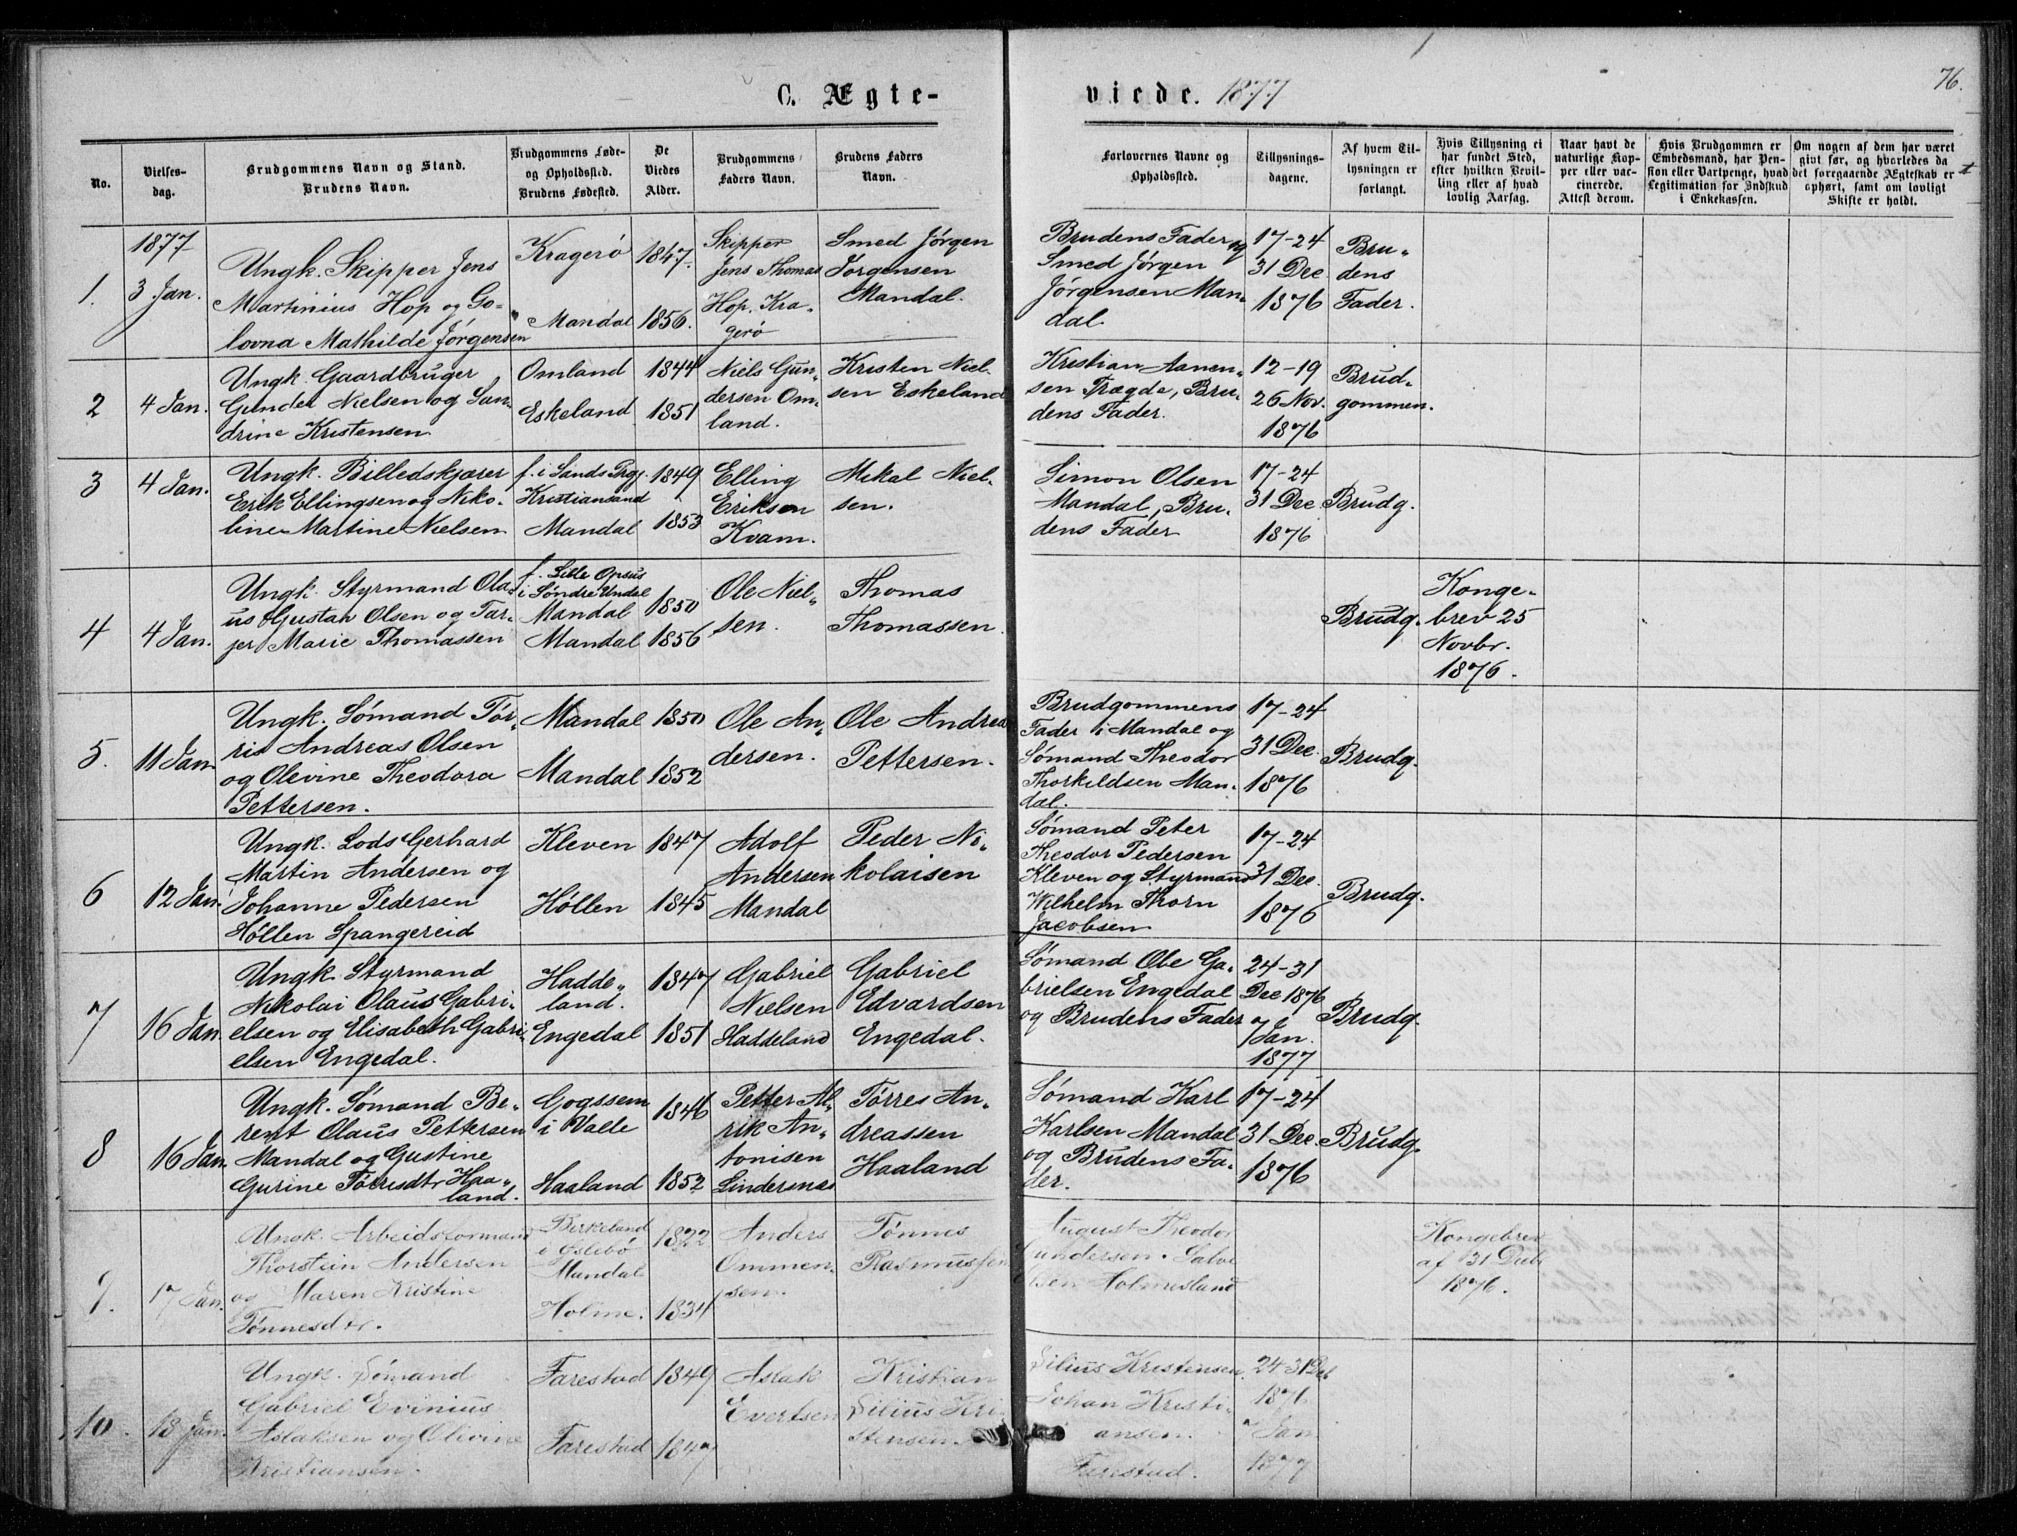 C. Ægte-
viede. 1877
76.
No.
Vielses-
dag.
Brudgommens Navn og Stand.
Brudens Navn.
Brudgommens Føde-
og Opholdssted.
Brudens Fødested.
De
Viedes
Alder.
Brudgommens
Faders Navn.
Brudens Faders
Navn.
Forlovernes Navne og
Opholdssted.
Tillysnings-
dagene.
Af hvem Til-
lysningen er
forlangt.
Hvis Tillysning ei
har fundet Sted,
efter hvilken Bevil-
ling eller af hvad
lovlig Aarsag.
Naar havt de
naturlige Kop-
per eller vac-
cinerede.
Attest derom.
Hvis Brudgommen er
Embedsmand, har Pen-
sion eller Vartpenge, hvad
Legitimation for Indskud
i Enkekassen.
Om nogen af dem har været
givt før, og hvorledes da
det foregaaende Ægteskab er
ophørt, samt om lovligt
Skifte er holdt.
1877
1.
3 Jan.
Ungk. Skipper Jens
Martinius Hop og Go-
lovna Mathilde Jørgensen
Kragerø
Mandal
1847.
1856.
Skipper
Jens Thomas
Hop. Kra-
gerø
Smed Jørgen
Jørgensen
Mandal.
Brudens Fader og
Smed Jørgen
Jørgensen Man-
dal.
17-24
31 Dec
1876
Bru-
dens
Fader.
2
4 Jan.
Ungk. Gaardbruger
Gunder Nielsen og San-
drine Kristensen
Omland
Eskeland
1844
1851
Niels Gun-
dersen Om-
land.
Kristen Niel-
sen Eskeland
Kristian Aanen-
sen Trægde, Bru-
dens Fader.
12-19
26 Nov.
1876
Brud-
gommen.
3
4 Jan.
Ungk. Billedskjærer
Erik Ellingsen og Niko-
line Martine Nielsen
f. i Sinds Prgj.
Kristiansand
Mandal
1849
1853
Elling
Eriksen
Kvam.
Mikal Niel-
sen.
Simon Olsen
Mandal, Bru-
dens Fader
17-24
31 Dec
1876
Brudg.
4
4 Jan.
Ungk. Styrmand Ola-
us Gustav Olsen og Tar-
jer Marie Thomassen
f. Lille Opsus
i Søndre Undal
Mandal
Mandal
1850
1856
Ole Niel-
sen.
Thomas
Thomassen
Brudg.
Konge-
brev 25
Novbr.
1876.
5.
11 Jan
Ungk. Sømand Tør-
ris Andreas Olsen
og Olevine Theodora
Pettersen.
Mandal
Mandal
1850
1852
Ole An-
dersen.
Ole Andreas
Pettersen.
Brudgommens
Fader i Mandal og
Sømand Theodor
Thorkildsen Man-
dal.
17-24
31 Dec.
1876
Brudg.
6
12 Jan
Ungk. Lods Gerhard
Martin Andersen og
Johanne Pedersen
Høllen Spangereid
Kleven
Høllen
1847
1845
Adolf
Andersen
Mandal
Peder Ni-
kolaisen
Sømand Peter
Theodor Pedersen
Kleven og Styrmand
Wilhelm Thorn
Jacobsen
17-24
31 Dec.
1876
Brudg.
7
16 Jan.
Ungk. Styrmand
Nikolai Olaus Gabri-
elsen og Elisabeth Gabri-
elsen Engedal.
Hadde-
land.
Engedal
1847
1851
Gabriel
Nielsen
Haddeland
Gabriel
Edvardsen
Engedal.
Sømand Obe Ga-
brielsen Engedal
og Brudens Fader
24-31
Dec 1876
7
Jan.
1877
Brudg.
8
16 Jan
Ungk. Sømand Be-
rent Olaus Pettersen
Mandal og Gustine
Gurine Torresdtr Haa-
land.
Gogssem
i Valle
Haaland
1846
1852
Petter Al-
rik An-
tonisen
Lindesnæs
Tørres An-
dreassen
Haaland
Sømand Karl
Karlsen Mandal
og Brudens Fa-
der.
17-24
31 Dec.
1876
Brudg.
9.
17 Jan.
Ungk. Arbeidsformand
Thorstein Andersen
og Maren Kristine
Tønnesdtr.
Birkeland
i Øslebø
Mandal
Holme.
1822
1834
Anders
Ommen-
sen.
Tønnes
Rasmussen
August Theodor
Gundersen. Salve
Olsen Holmesland
Kongebrev
af 31 Decb
1876.
10.
18 Jan.
Ungk. Sømand
Gabriel Evinius
Aslaksen og Olivine
Kristiansen.
Farestad
Farestad
1849
1847
Aslak
Evertsen
Kristian
Silius Kri-
stensen.
Silius Kristensen
Johan Kristi-
ansen.
Farestad.
24 31 Dec
1876
7 Jan
1877